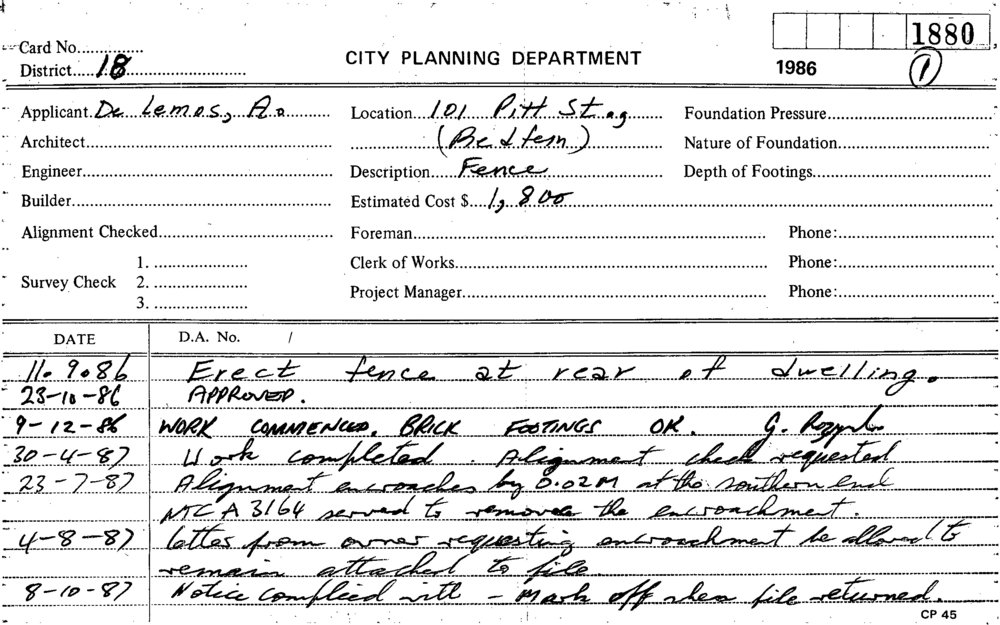 1880
Card No.
CITY PLANNING DEPARTMENT
1986
1
District 18
Applicant De Lemos, A.
Location 101 Pitt St.
Foundation Pressure
Architect
(Redfern)
Nature of Foundation
Engineer
Description Fence
Depth of Footings
Builder
Estimated Cost $ 1,800
Alignment Checked
Foreman
Phone:
1.
Clerk of Works
Phone:
Survey Check 2.
Project Manager
Phone:
3.
DATE D.A. No. /
11.9.86 Erect fence at rear of dwelling.
23-10-86 APPROVED.
9-12-86 WORK COMMENCED. BRICK FOOTINGS OK. G.
30-4-87 Work completed. Alignment check requested
23-7-87 Alignment encroaches by 0.02M at the southern end
NTC A 3164 served to remove the encroachment.
4-8-87 letter from owner requesting encroachment be allowed to
remain attached to file
8-10-87 Notice complied with - Mark off when file returned.
CP 45